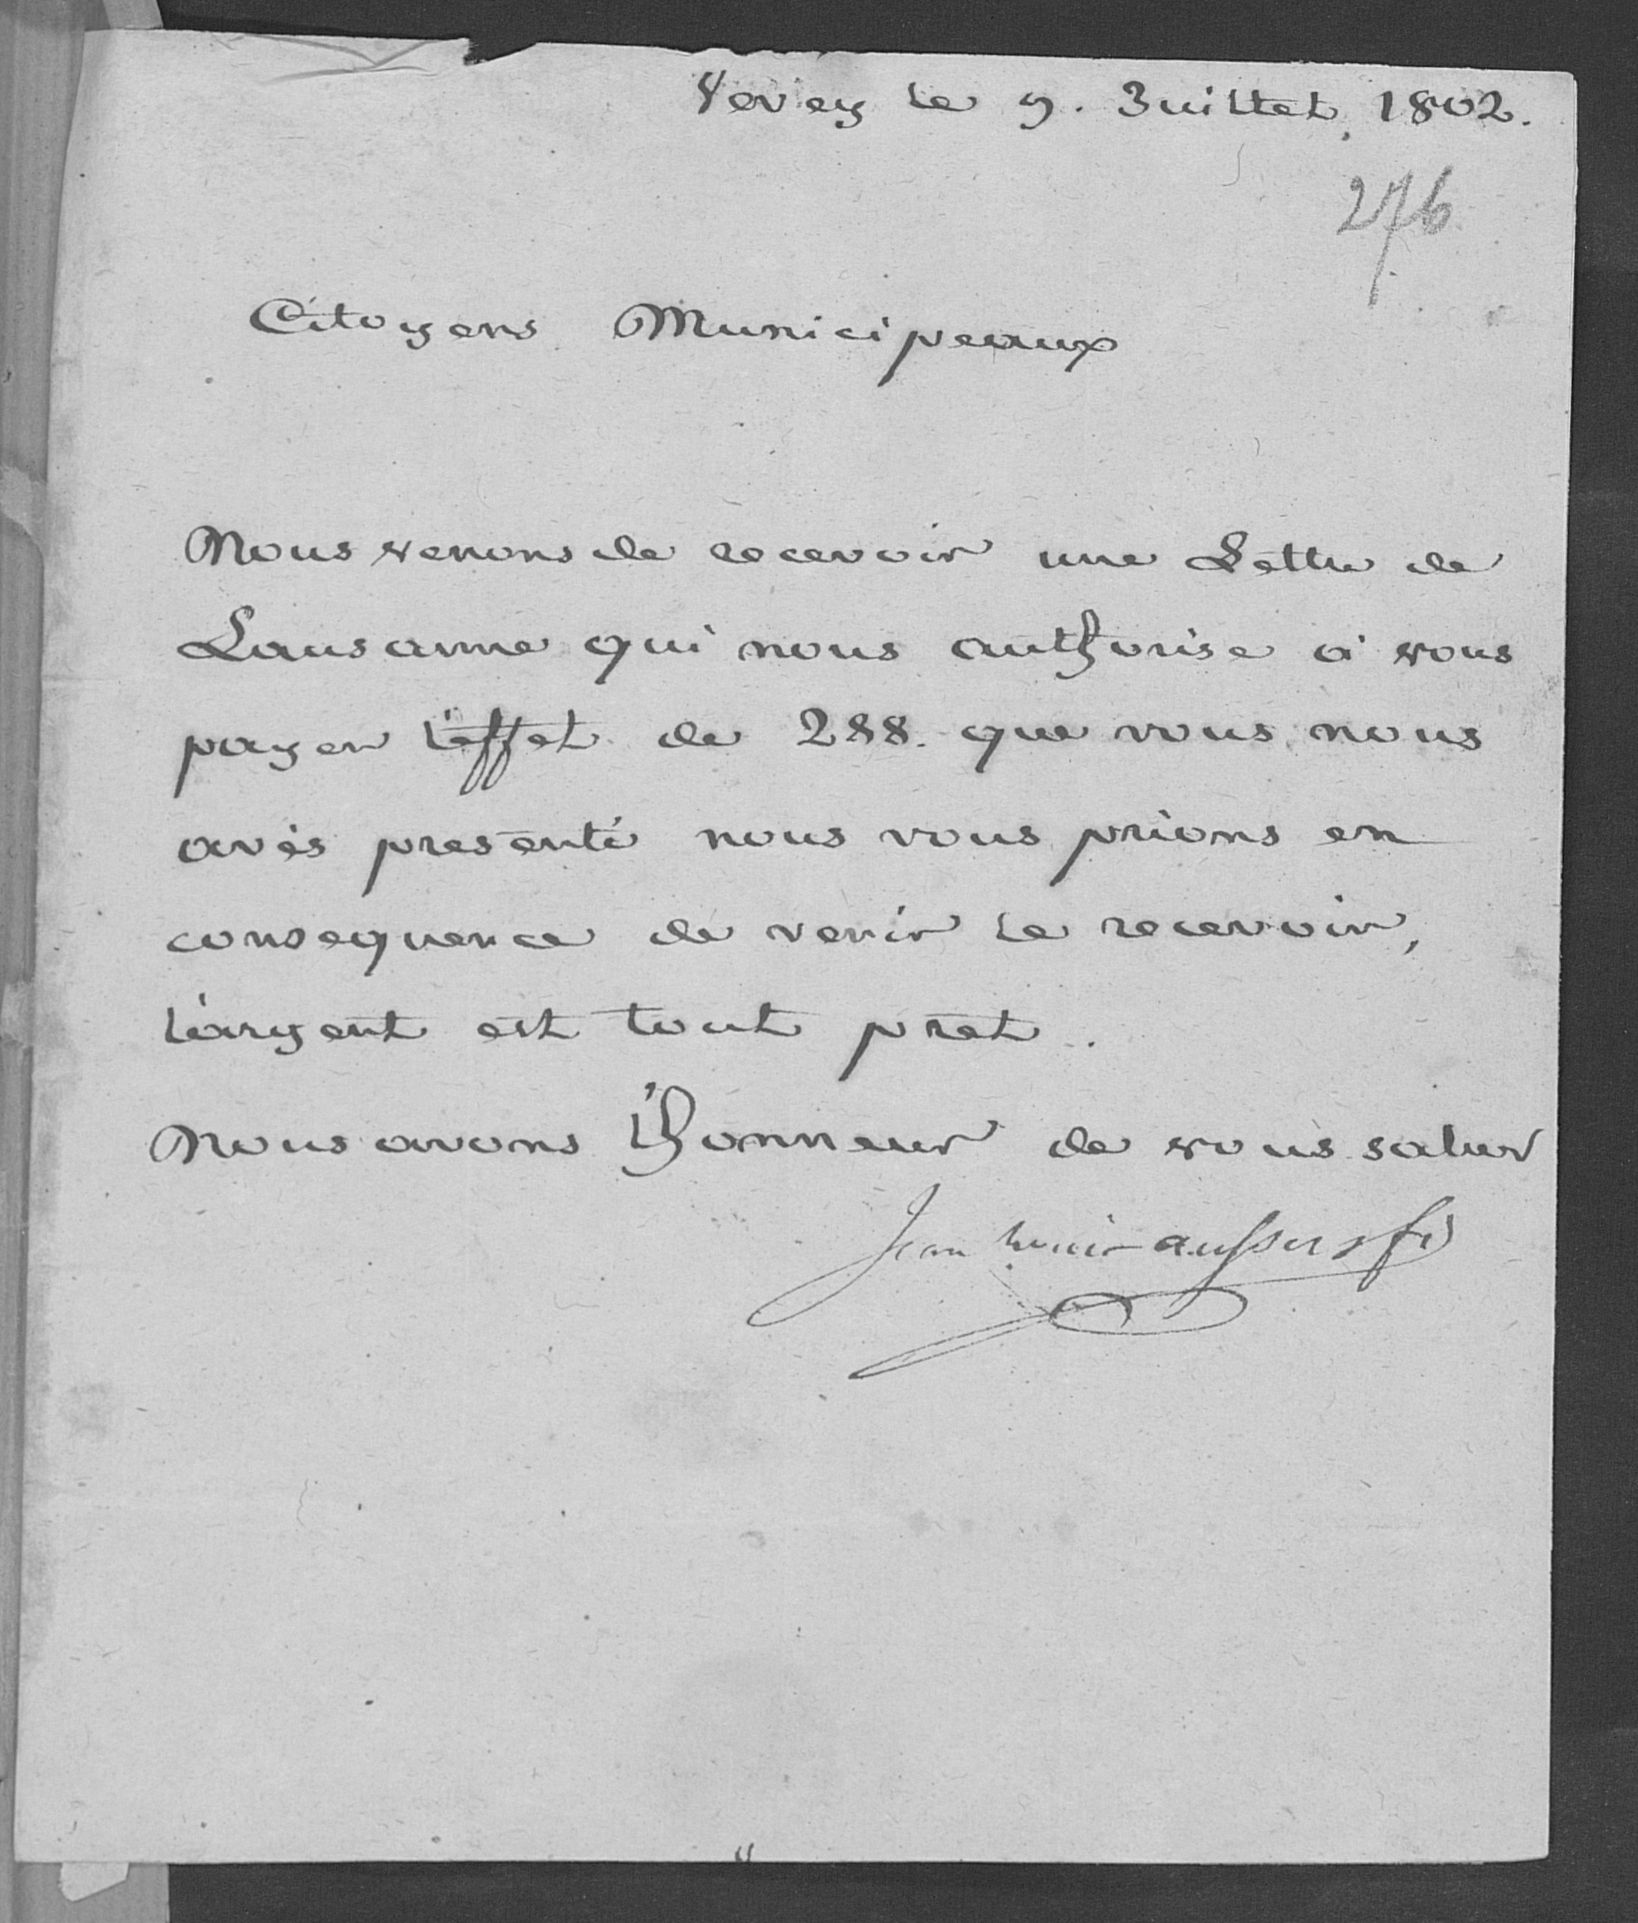 Vevey le 9. Juillet 1802.
276
Citoyens Municipeaux
Nous venons de recevoir une Lettre de
Lausanne qui nous authorise a vous
payer l'effet de 288. que vous nous
avés presenté nous vous prions en
consequence de venir le recevoir,
l'argent est tout pret.
Nous avons l'honneur de vous saluer
Jean